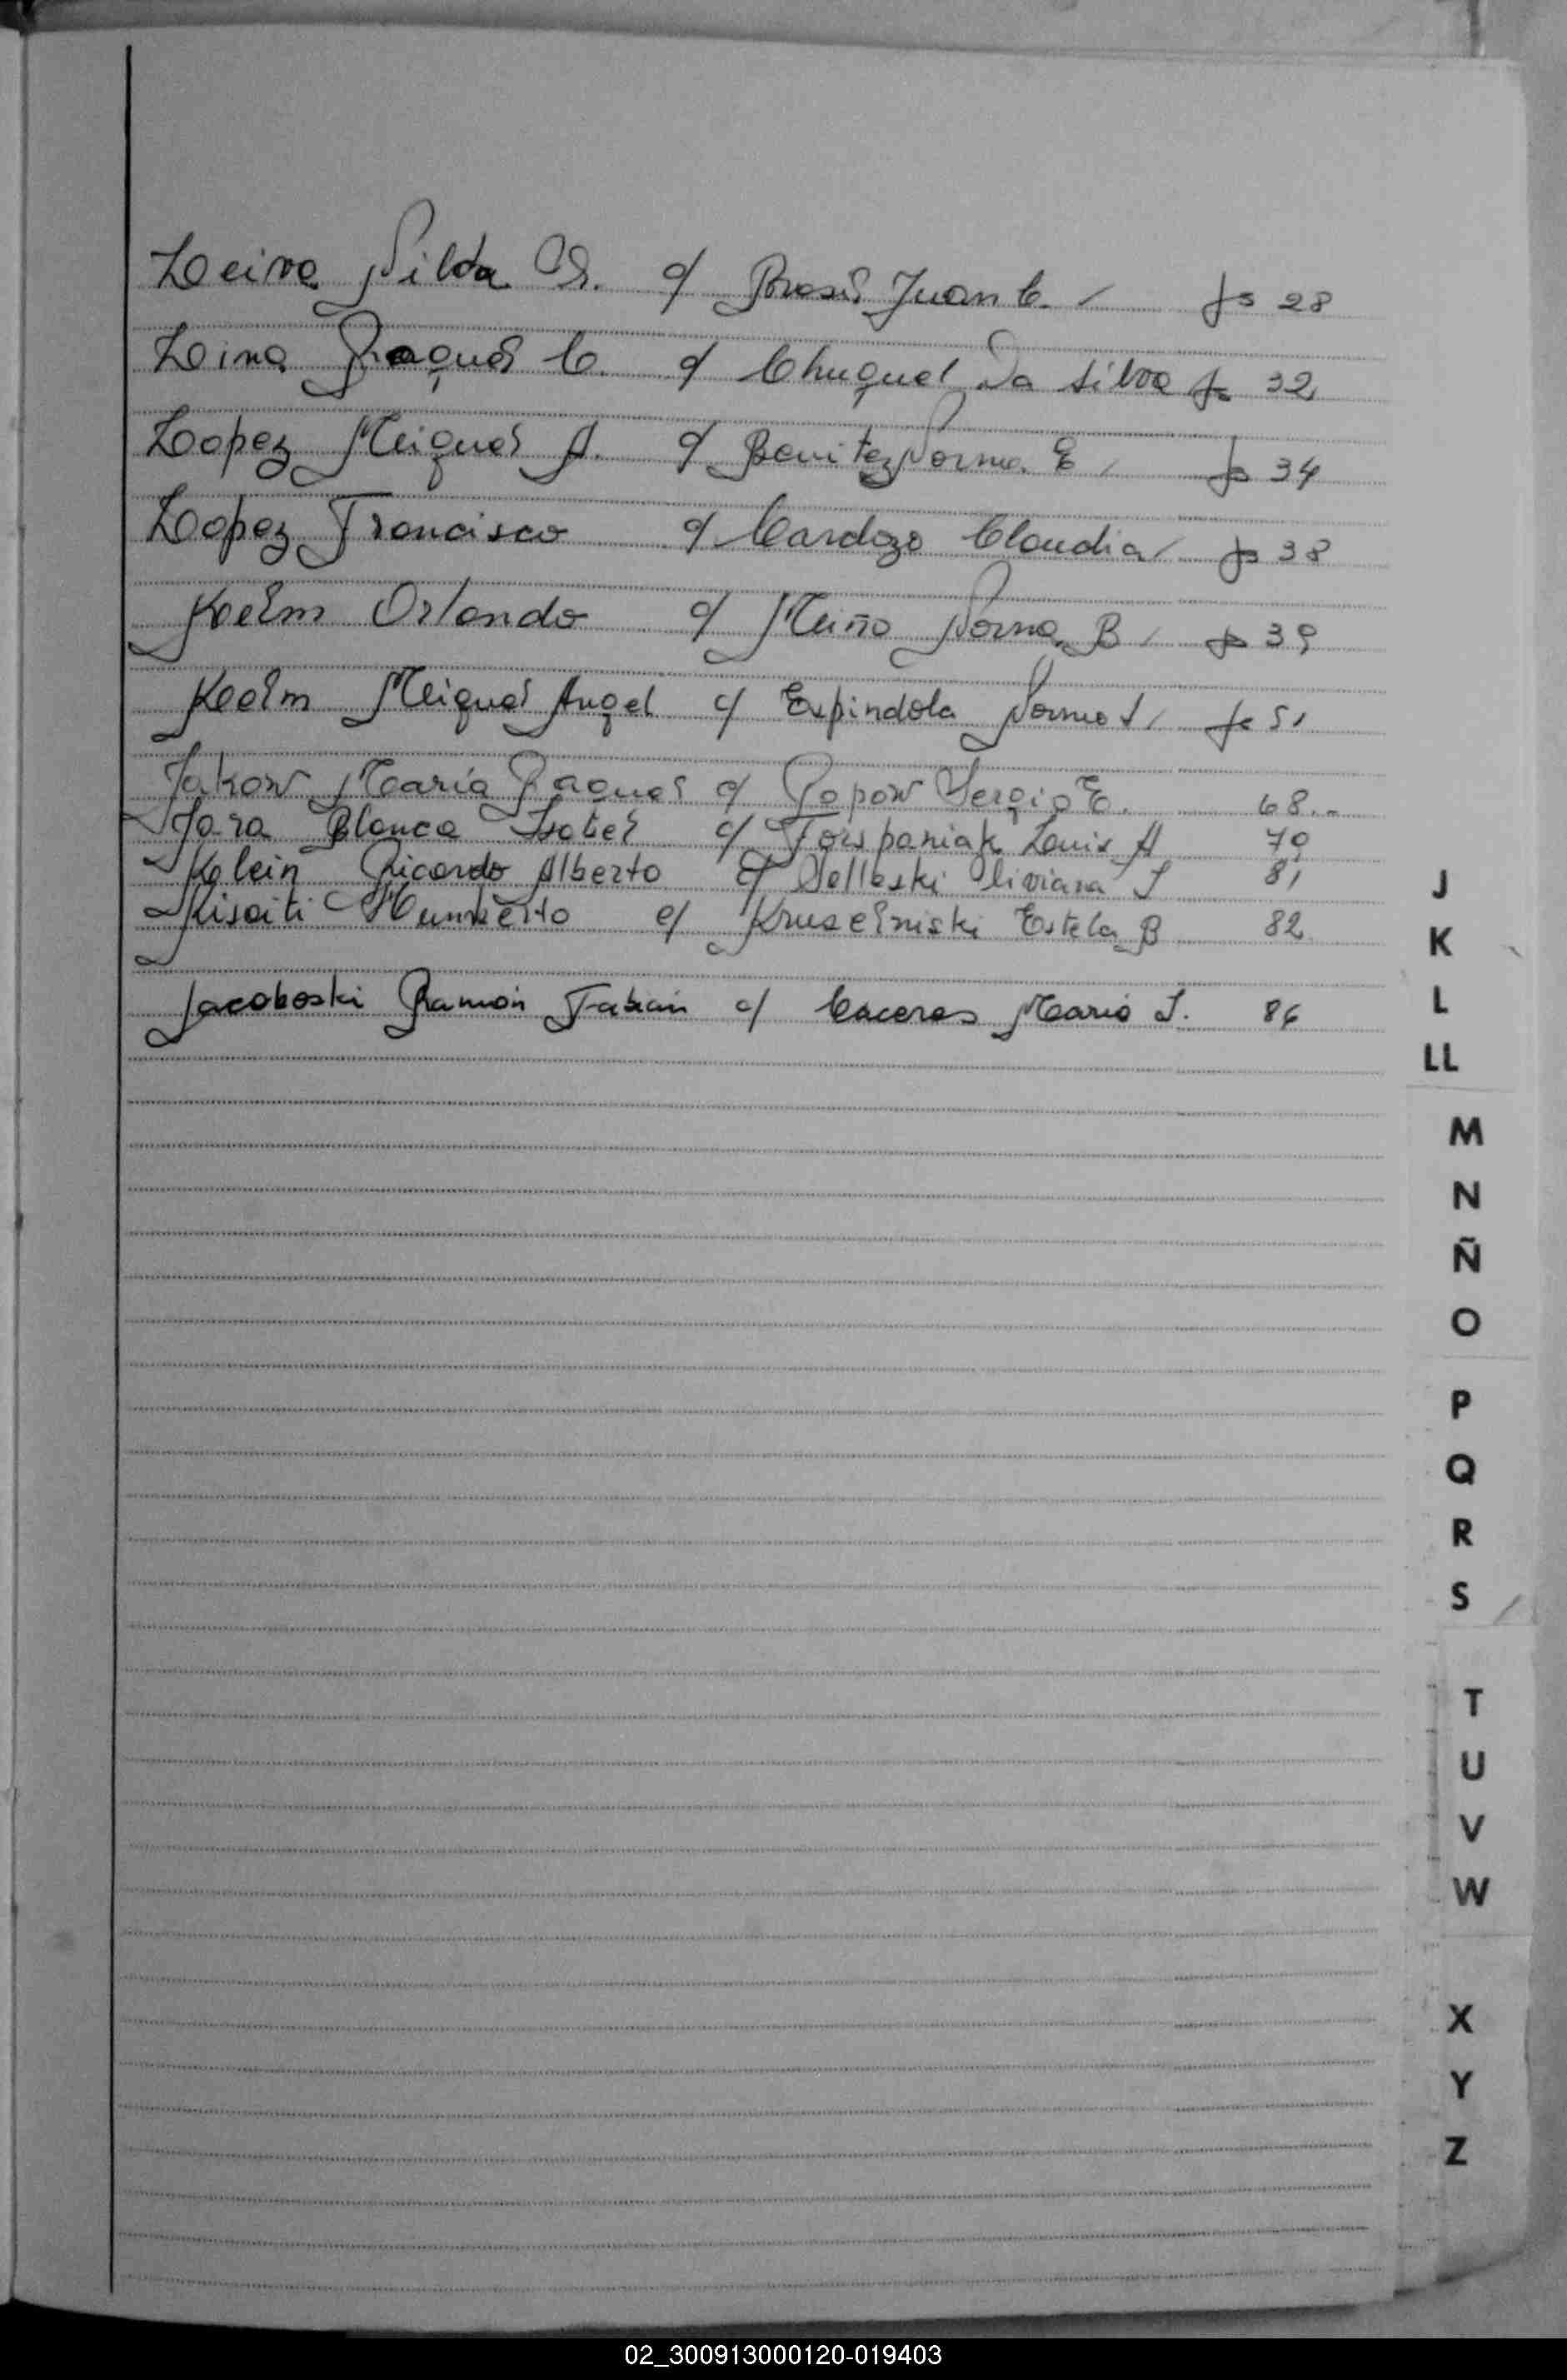 Leiva Nilda R. c/ Brasil Juan C. fs 28
Lima Raquel C. c/ Chuquel Da Silva fs 32
Lopez Miguel A. c/ Benitez Norma E fs 34
Lopez Francisco c/ Cardozo Claudia fs 38
Kelm Orlando c/ Miño Norma B fs 39
Kelm Miguel Angel c/ Espindola Norma fs 51
Jakow Maria Raquel c/ Popow Sergio E. 68.-
Jara Blanca Isabel c/ Luis A 70
Klein Ricardo Alberto c/ Viviana 81
Humberto c/ Kruselniski Estela B 82
Jacoboski Ramón Fabian c/ Caceres Maria I. 86
J
K
L
LL
M
N
Ñ
O
P
Q
R
S
T
U
V
W
X
Y
Z
02_300913000120-019403